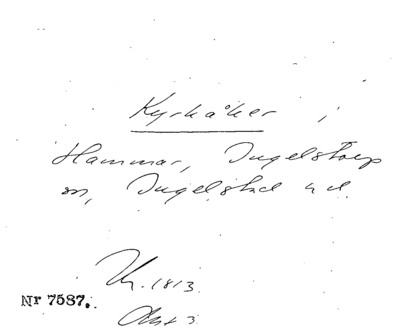 Kyrkåker i
Hammar, Ingelstorp
sn, Ingelstad hd.
Kr. 1813.
Nr 7587.
Akt 3